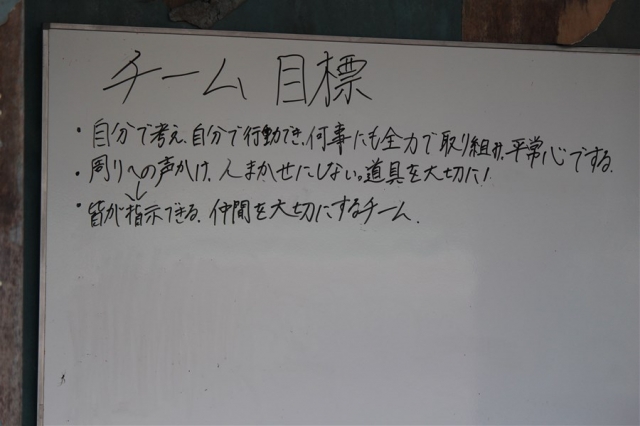 チーム目標
・自分で考え、自分で行動でき、何事にも全力で取り組み、平常心でする。
・周りへの声かけ、人まかせにしない。道具を大切に!
・皆が指示できる、仲間を大切にするチーム。